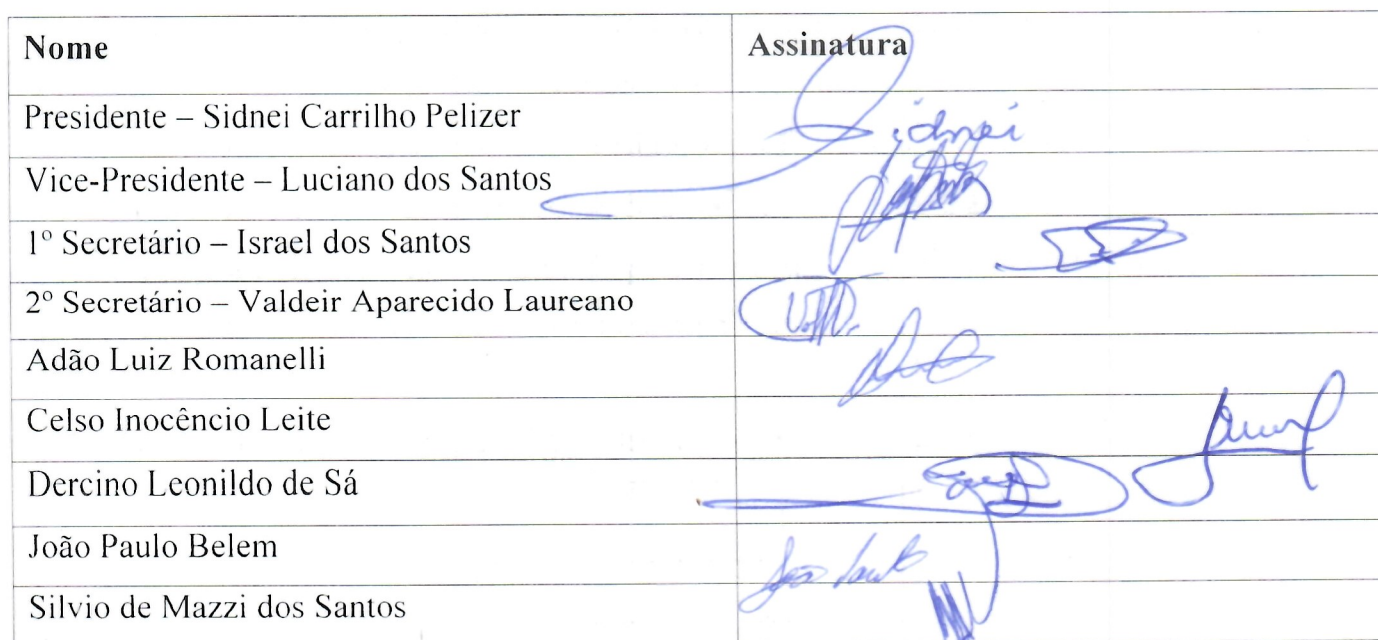 Nome Assinatura
Presidente – Sidnei Carrilho Pelizer Sidnei
Vice-Presidente – Luciano dos Santos
1º Secretário – Israel dos Santos
2º Secretário – Valdeir Aparecido Laureano
Adão Luiz Romanelli
Celso Inocêncio Leite
Dercino Leonildo de Sá
João Paulo Belem João Paulo
Silvio de Mazzi dos Santos